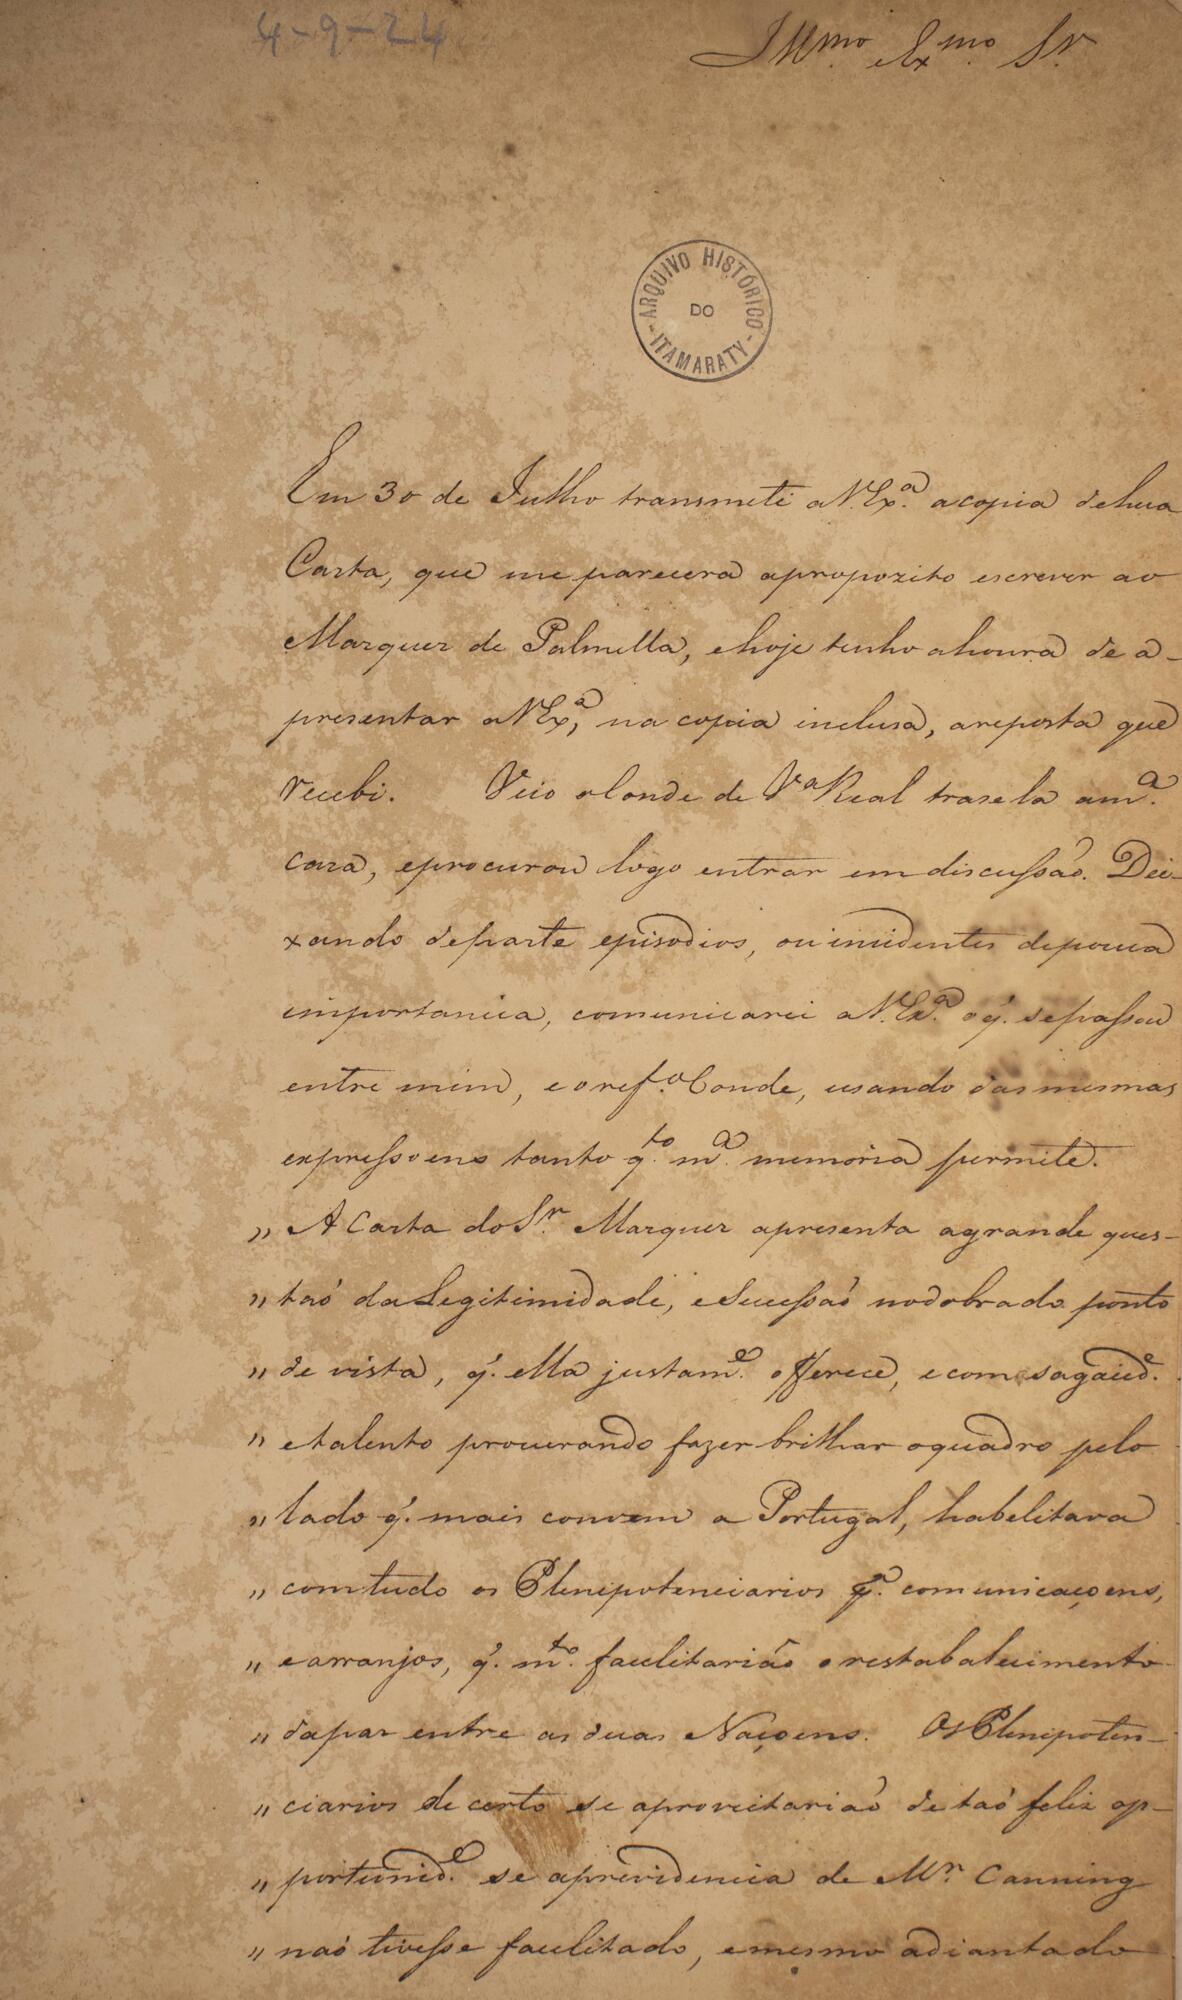 4-9-24
Illmo. e Exmo. Sr.
ARQUIVO HISTÓRICO
DO
- ITAMARATY -
Em 30 de Julho transmeti a V. Exa. a copia de hua
Carta, que me parecera a propozito escrever ao
Marquez de Palmella, e hoje tenho a honra de a-
presentar a V Exa, na copia inclusa, a reposta que
recebi. Veio o Conde de Va Real trazela a ma.
caza, e procurou logo entrar em discussaõ. Dei-
xando de parte episodios, ou incidentes de pouca
importancia, comunicarei a V. Exa. o q. se passou
entre mim, e o refo. Conde, usando das mesmas
expressoens tanto qto. ma. memoria permite.
" A Carta do Sr. Marquez apresenta a grande ques-
" taõ da Legitimidade, e Sucessaõ no dobrado ponto
" de vista, q. ella justame. offerece, e com sagacide.
" e talento procurando fazer brilhar o quadro pelo
" lado q. mais convem a Portugal, habelitava
" com tudo os Plenipotenciarios pa. comunicaçoens,
" e arranjos, q. mto. facilitariaõ o restabalecimento
" da paz entre as duas Naçoens. Os Plenipoten-
" ciarios de certo se aproveitariaõ de taõ feliz op-
" portunide. se a previdencia de Mr. Canning
" naõ tivesse facilitado, e mesmo adiantado